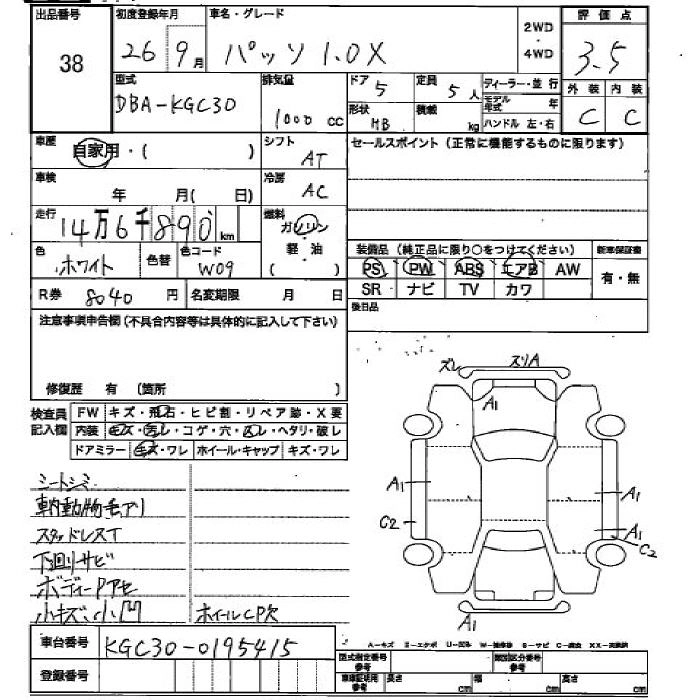 出品番号 初度登録年月 車名・グレード 評価点
38 26 9月 パッソ 1.0X 2WD・4WD 3.5
型式 排気量 ドア 定員 ディーラー・並行 外装 内装
DBA-KGC30 1000cc 5 5人 モデル年式 年 C C
形状 HB 積載 kg ハンドル 左・右
車歴 自家用・( ) シフト AT セールスポイント(正常に機能するものに限ります)
車検 年 月(日) 冷房 AC
走行 14万6千890km 燃料 ガソリン 軽・油 ( )
色 ホワイト 色替 色コード W09
装備品(純正品に限り○をつけてください) 新車保証書
PS PW ABS エアB AW 有・無
SR ナビ TV カワ
R券 8040円 名変期限 月 日 後日品
注意事項申告欄(不具合内容等は具体的に記入して下さい)
修復歴 有 (箇所 )
検査員記入欄 FW キズ・飛石・ヒビ割・リペア跡・X要
内装 キズ・汚レ・コゲ・穴・スレ・ヘタリ・破レ
ドアミラー キズ・ワレ ホイール・キャップ キズ・ワレ
ズレ スリA
A1
A1 A1
C2 A1
C2
A1
シートシミ
車内動物毛アリ
スタッドレスT
下回リサビ
ボディーアセ
小キズ、小凹 ホイールCP欠
A-キズ E-エクボ U-凹み W-補修跡 S-サビ C-腐食 XX-交換済
車台番号 KGC30-0195415
型式指定番号 類別区分番号
登録番号 車庫証明用参考 長さ cm 幅 cm 高さ cm